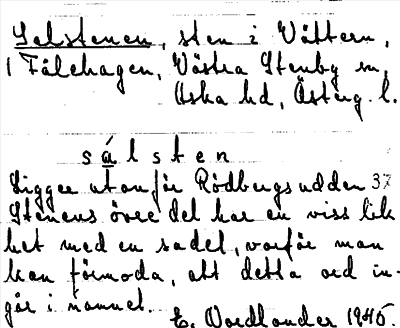 Selstenen, sten i Vättern,
1 Fålehagen, Västra Stenby sn,
Aska hd, Österg. l.
sálsten
Ligger utanför Rödbergsudden 37
Stenens övre del har en viss lik
het med en sadel, varför man
kan förmoda, att detta ord in-
går i namnet.
E. Nordlander 1945.